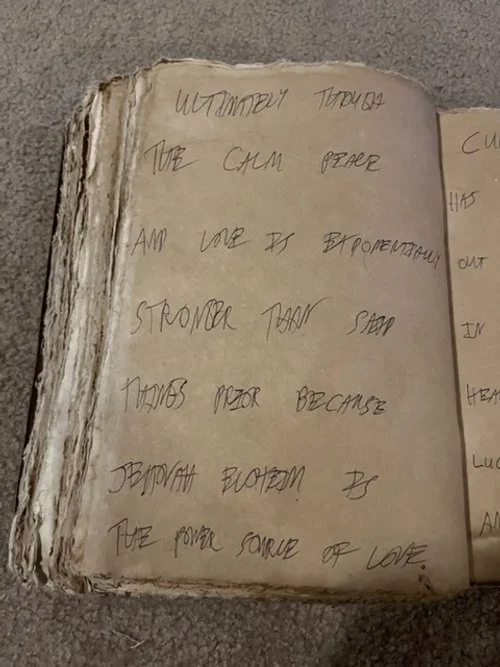 ULTIMATELY THOUGH
THE CALM PEACE
AND LOVE IS EXPONENTIALLY
STRONGER THAN SAID
THINGS PRIOR BECAUSE
JEHOVAH ELOHEIM IS
THE POWER SOURCE OF LOVE.
HAS
OUT
IN